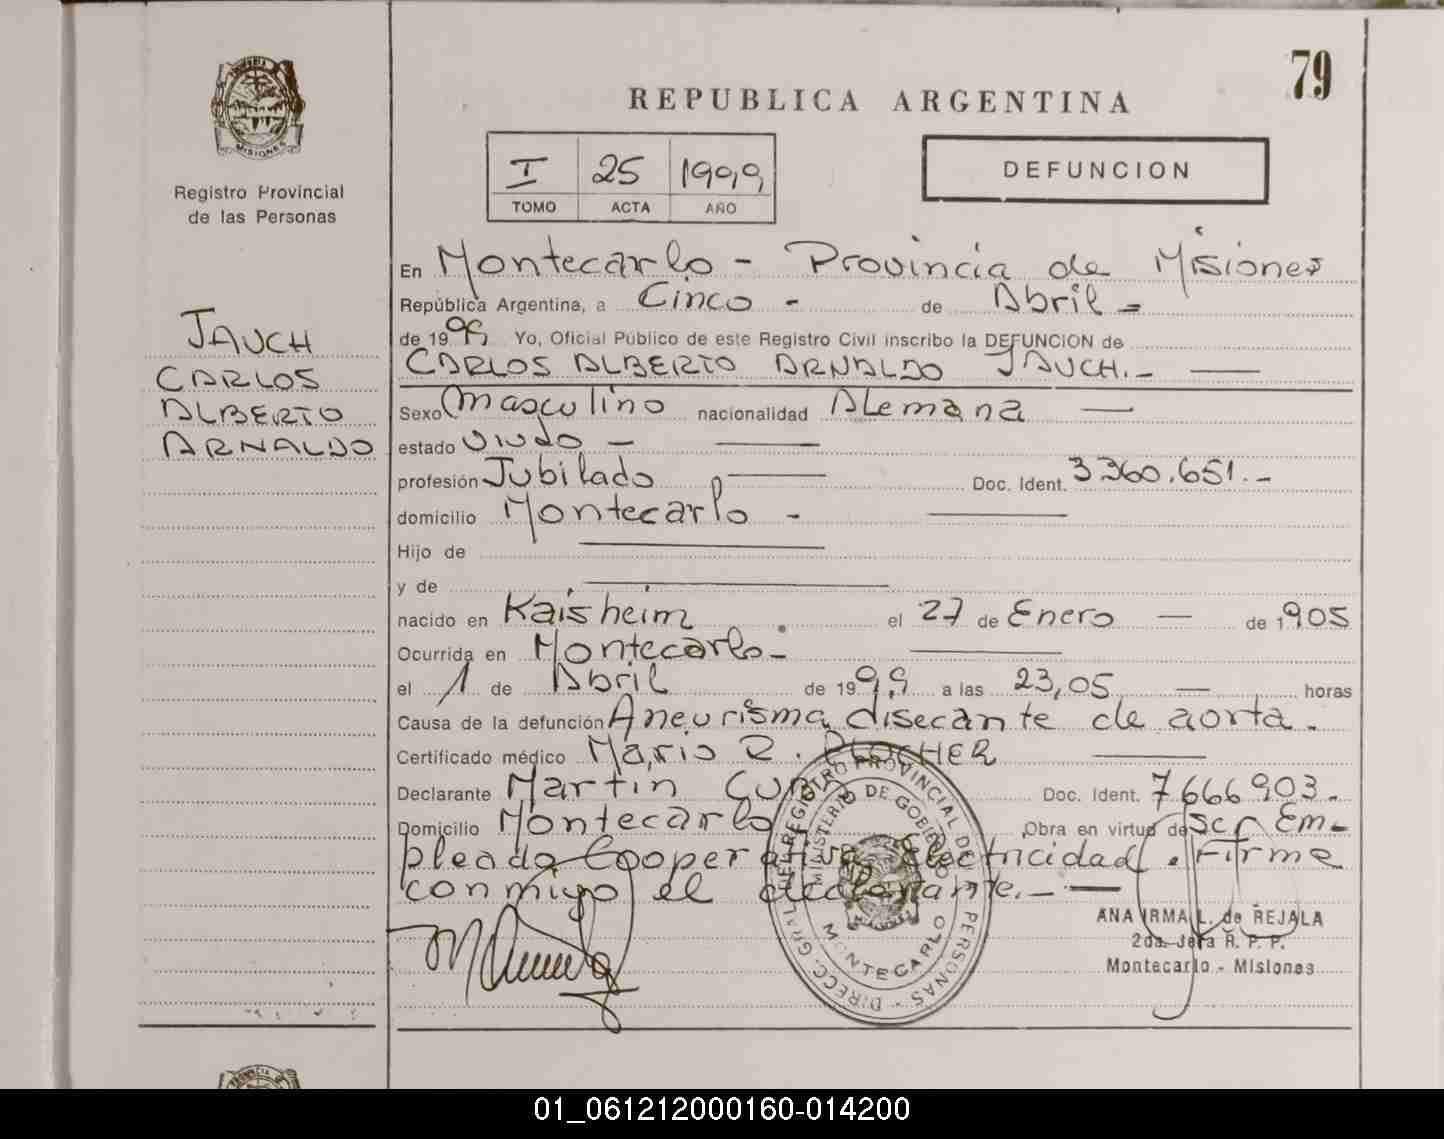 79
REPUBLICA ARGENTINA
MISIONES
Registro Provincial
de las Personas
I 25 1999
TOMO ACTA AÑO
DEFUNCION
JAUCH
CARLOS
ALBERTO
ARNALDO
En Montecarlo - Provincia de Misiones
República Argentina, a Cinco - de Abril -
de 1999 Yo, Oficial Público de este Registro Civil inscribo la DEFUNCION de
CARLOS ALBERTO ARNALDO JAUCH.-
Sexo Masculino nacionalidad Alemana
estado Viudo -
profesión Jubilado Doc. Ident. 3360.651.-
domicilio Montecarlo -
Hijo de
y de
nacido en Kaisheim el 27 de Enero de 1905
Ocurrida en Montecarlo.-
el 1 de Abril de 1999 a las 23,05 horas
Causa de la defunción Aneurisma disecante de aorta.
Certificado médico Mario R. PLOCHER
Declarante Martin Doc. Ident. 7666903.
Domicilio Montecarlo Obra en virtud de ser Em-
pleado Cooperativa Electricidad. Firma
conmigo el declarante.-
DIRECC. GRAL. DE REGISTRO PROVINCIAL DE PERSONAS -
MINISTERIO DE GOBIERNO
MONTECARLO
ANA IRMA L. de REJALA
2da. Jefa R. P. P.
Montecarlo - Misiones
01_061212000160-014200